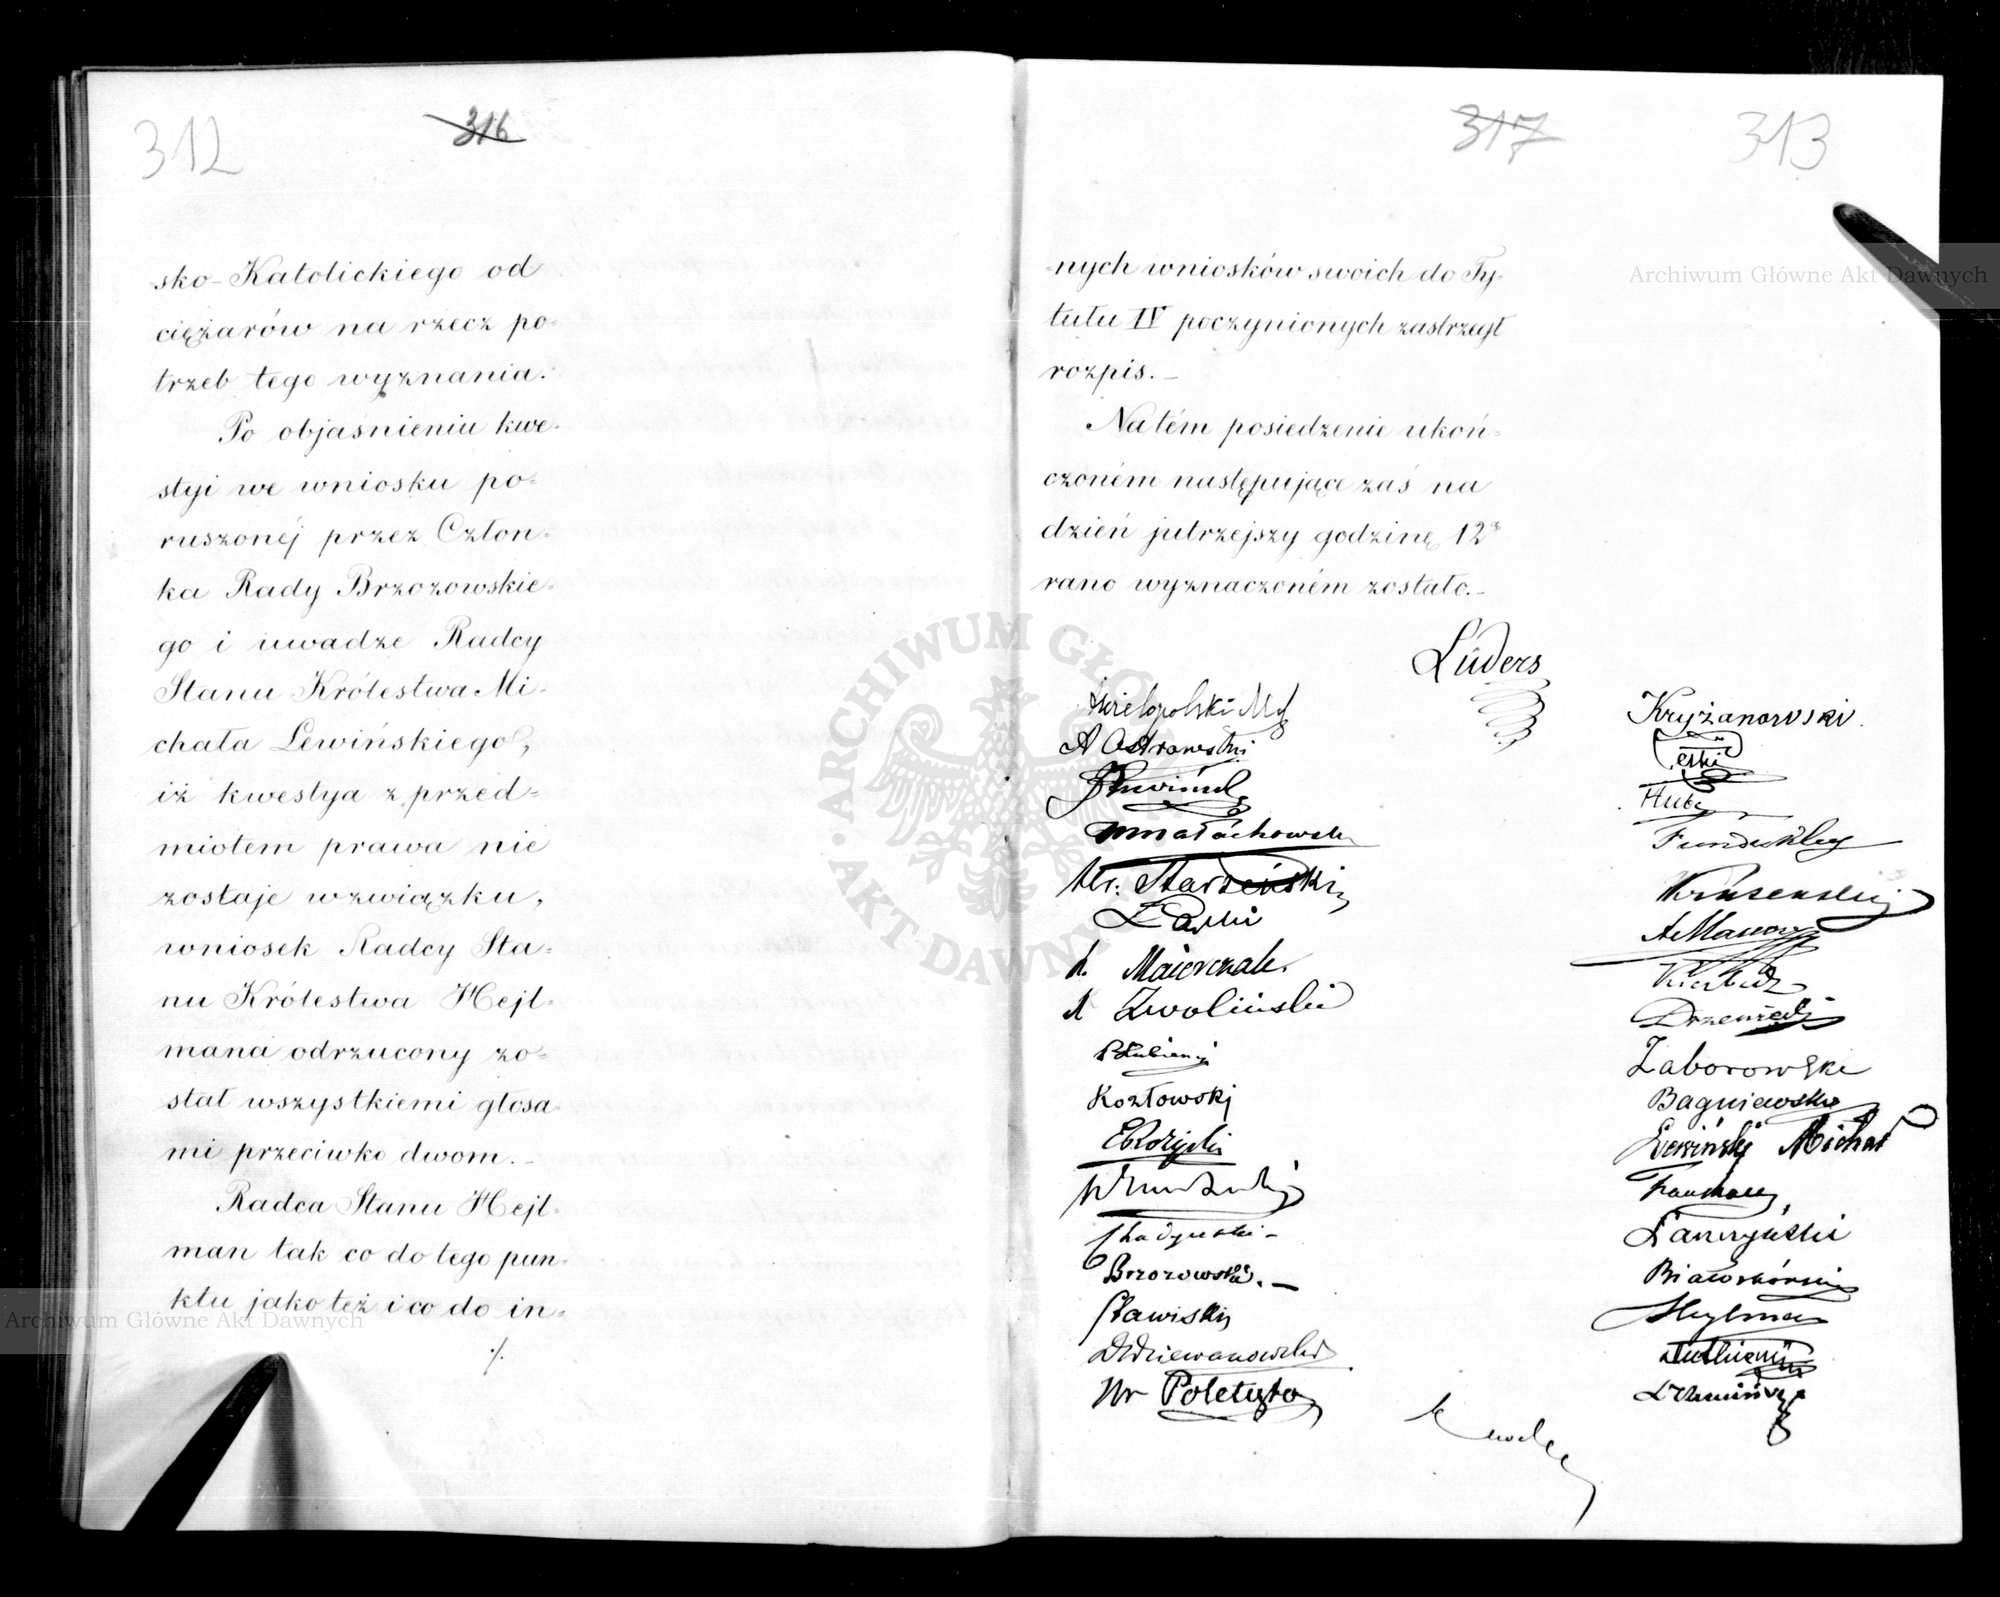 312
316
sko-Katolickiego od
ciężarów na rzecz po-
trzeb tego wyznania.
Po objaśnieniu kwe-
styi we wniosku po-
ruszonéj przez Człon-
ka Rady Brzozowskie-
go i uwadze Radcy
Stanu Królestwa Mi-
chała Lewińskiego,
iż kwestya z przed-
miotem prawa nie
zostaje w związku,
wniosek Radcy Sta-
nu Królestwa Hejl-
mana odrzucony zo-
stał wszystkiemi głosa-
mi przeciwko dwom.-
Radca Stanu Hejl-
man tak co do tego pun-
ktu jako też i co do in-
./.
317
313
nych wniosków swoich do Ty-
tułu IV poczynionych zastrzegł
rozpis.-
Na tém posiedzenie ukoń-
czoném następujące zaś na
dzień jutrzejszy godzinę 12
rano wyznaczoném zostało.-
Lüders
Wielopolski
A Ostrowski
Małachowski
Starzeński
Łaski
Zwoliński
Kozłowski
Brzozowski.-
Stawiski
Dziewanowski
Poletyło
Kryżanowski.
Hube
Funduklej
Kruzenstern
Drzewiecki
Zaborowski
Bagniewski
Lewiński Michał
Białoskórski
Hejlman
ARCHIWUM GŁÓWNE AKT DAWNYCH
Archiwum Główne Akt Dawnych
Archiwum Główne Akt Dawnych